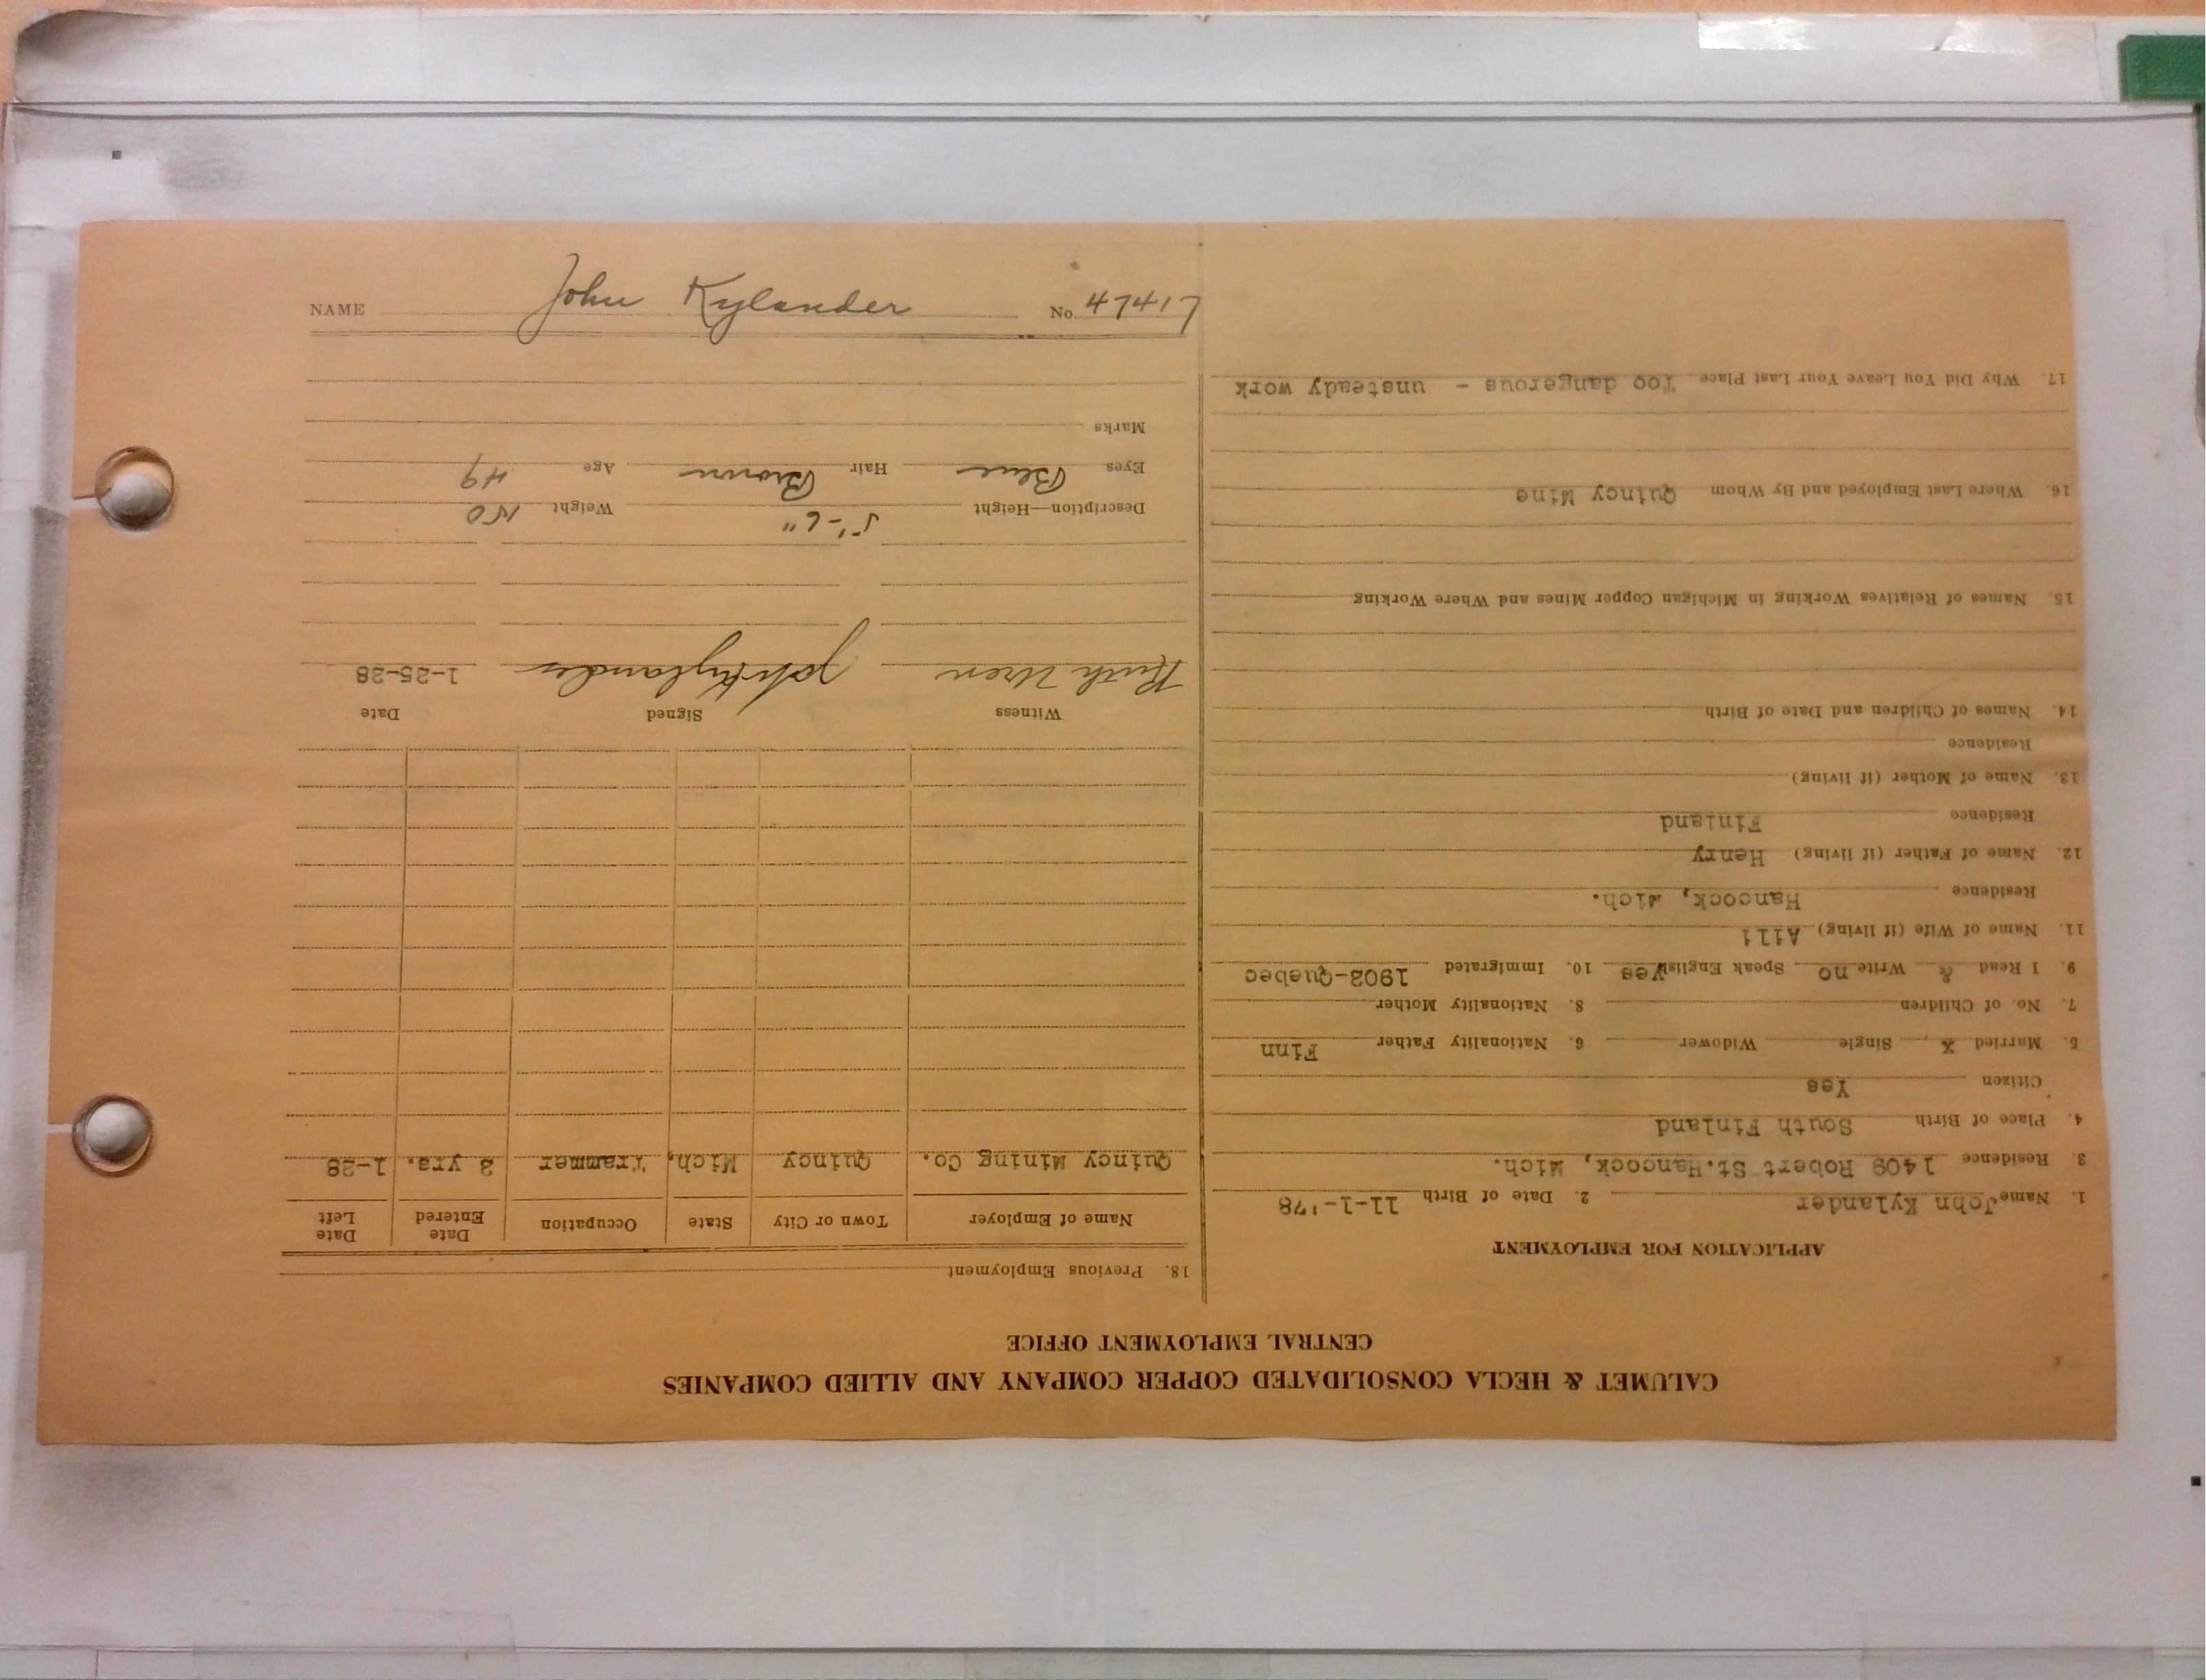 CALUMET & HECLA CONSOLIDATED COPPER COMPANY AND ALLIED COMPANIES
CENTRAL EMPLOYMENT OFFICE
APPLICATION FOR EMPLOYMENT
1. Name John Kylander 2. Date of Birth 11-1-'78
3. Residence 1409 Robert St. Hancock, Mich.
4. Place of Birth South Finland
Citizen Yes
5. Married X Single Widower 6. Nationality Father Finn
7. No. of Children 8. Nationality Mother
9. I Read & Write no Speak English yes 10. Immigrated 1902-Quebec
11. Name of Wife (if living) Alli
Residence Hancock, Mich.
12. Name of Father (if living) Henry
Residence Finland
13. Name of Mother (if living)
Residence
14. Names of Children and Date of Birth
15. Names of Relatives Working in Michigan Copper Mines and Where Working
16. Where Last Employed and By Whom Quincy Mine
17. Why Did You Leave Your Last Place Too dangerous - unsteady work
18. Previous Employment
Name of Employer Town or City State Occupation Date Entered Date Left
Quincy Mining Co. Quincy Mich. Trammer 2 yrs. 1-28
Witness Signed Date
Ruth Uren John Kylander 1-25-28
Description—Height 5'-6" Weight 150
Eyes Blue Hair Brown Age 49
Marks
NAME John Kylander No. 47417